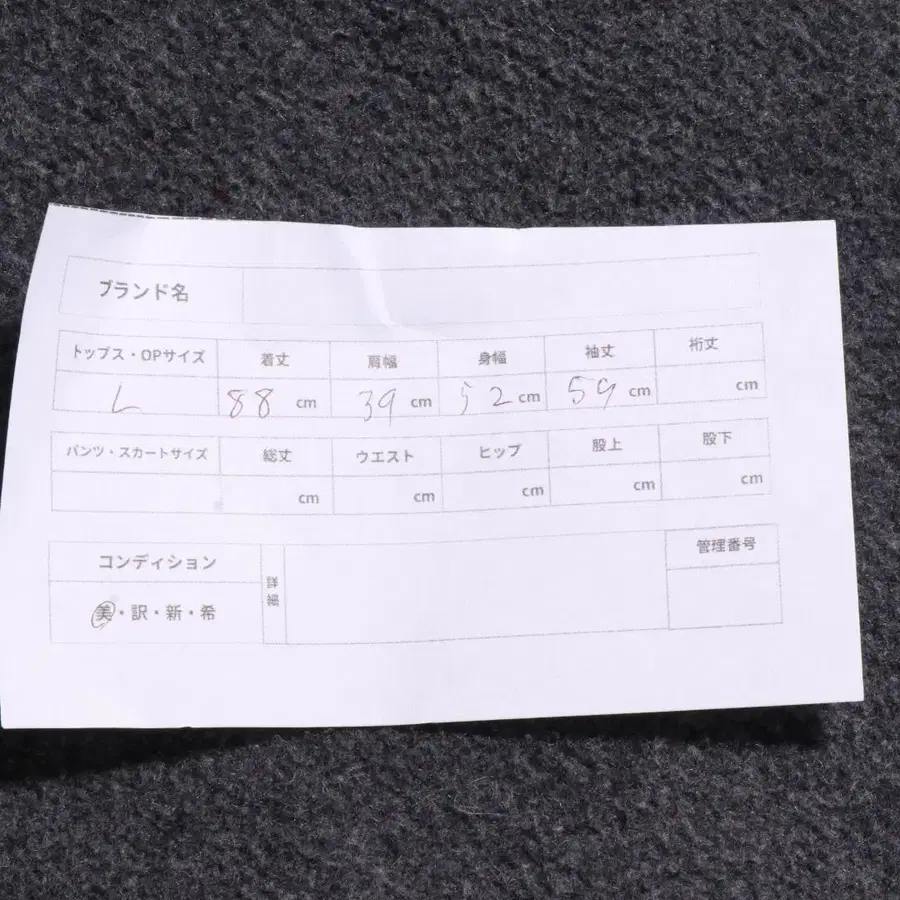 ブランド名
トップス・OPサイズ 着丈 肩幅 身幅 袖丈 裄丈
L 88 cm 39 cm 52 cm 59 cm cm
パンツ・スカートサイズ 総丈 ウエスト ヒップ 股上 股下
cm cm cm cm cm
コンディション 詳細 管理番号
美・訳・新・希